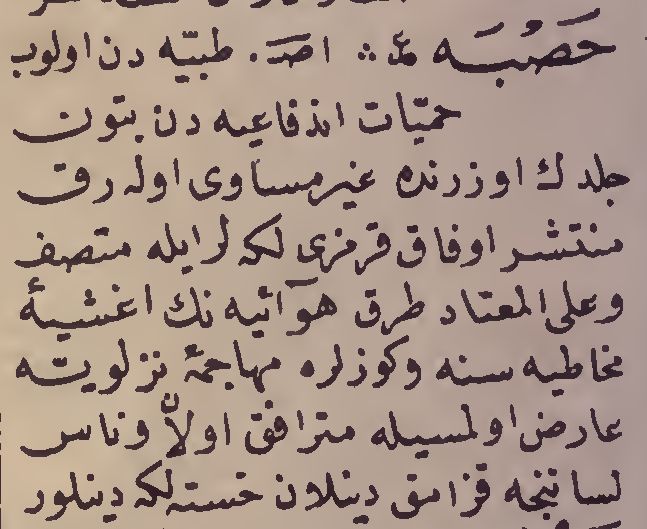 حَصْبَه عـ :: اصـ . طبيّه دن اولوب
حميّات اندفاعيه دن بتون
جلدك اوزرنده غيرمساوى اوله رق
منتشر اوفاق قرمزى لكه لرايله متصف
وعلى المعتاد طرق هوآئيه نك اغشيۀ
مخاطيه سنه وكوزلره مهاجمۀ نزلويته
عارض اولمسيله مترافق اولان وناس
لساننجه قزامق دينلان خسته لكه دينلور